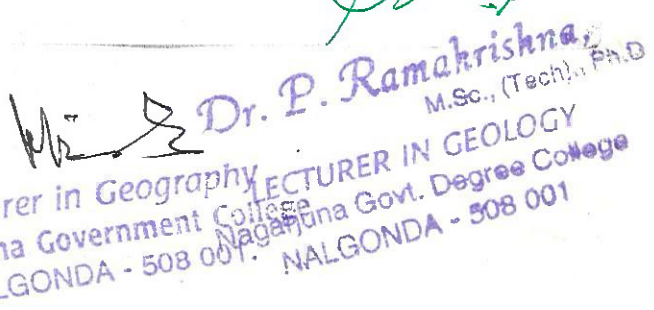 Dr. P. Ramakrishna,
M.Sc., (Tech)., Ph.D
LECTURER IN GEOLOGY
Nagarjuna Govt. Degree College
NALGONDA - 508 001
rer in Geography
na Government College
LGONDA - 508 001.